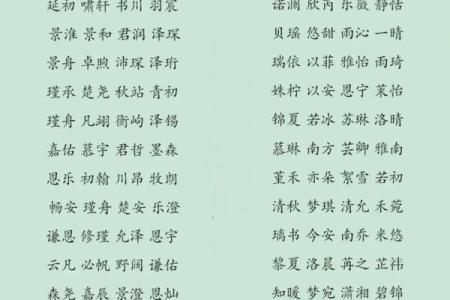 延初 啸轩 书川 羽宸
景淮 景和 君润 泽琛
景舟 卓煦 沛琛 泽珩
瑾承 楚尧 秋站 青初
瑾舟 凡翊 衡屿 泽锡
嘉佑 慕宇 君哲 墨森
恩乐 初翰 川昂 牧朗
畅安 瑾舟 楚安 乐澄
谦恩 修瑾 允泽 恩宇
云凡 必帆 野阔 谦佑
森尧 嘉辰 景澄 恩灿
诺澜 欣芮 乐薇 静恬
贝瑶 悠甜 雨沁 一晴
瑞依 以菲 雅怡 雨琦
姝柠 以安 恩宁 茉怡
锦夏 若冰 苏琳 洛晴
慕琳 南方 芸卿 雅南
堇禾 亦朵 絮雪 若初
清秋 梦琪 清允 禾菀
璃书 今安 南乔 米悠
黎夏 洛晨 苒之 芷祎
知暖 梦宛 潇湘 碧锦